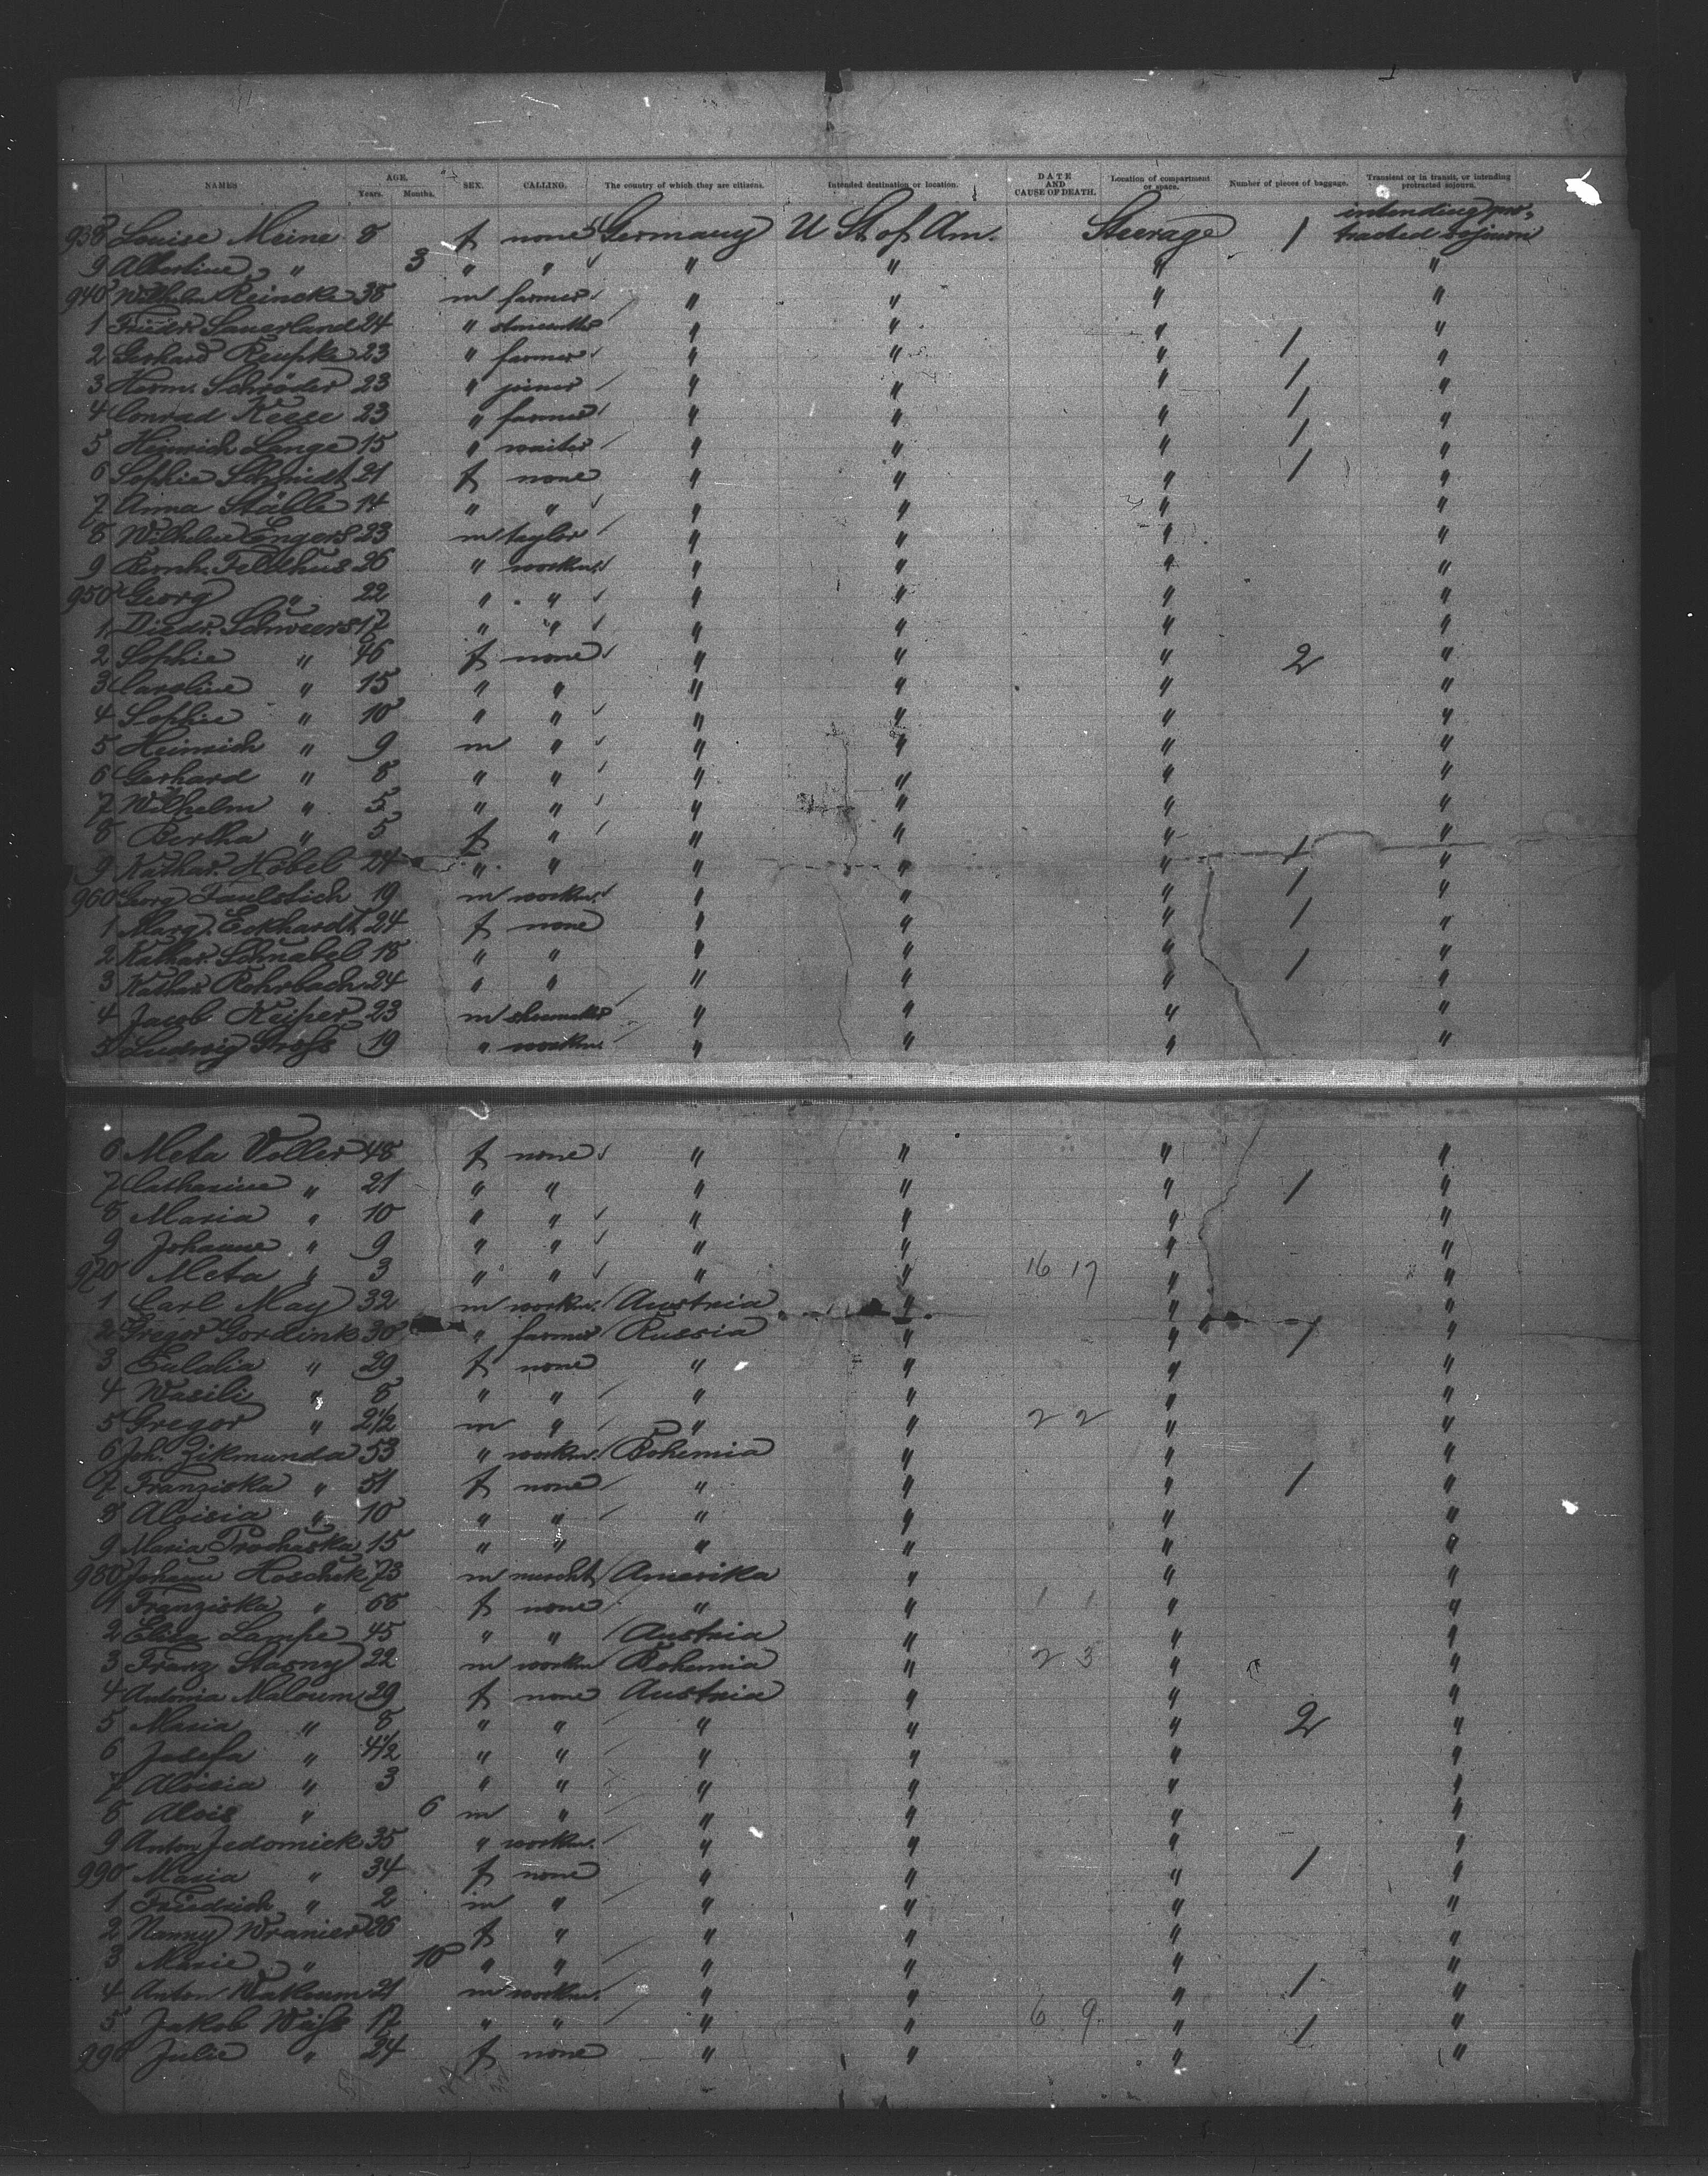 NAMES AGE. Years. Months. SEX. CALLING. The country of which they are citizens. Intended destination or location. DATE AND CAUSE OF DEATH. Location of compartment or space. Number of pieces of baggage. Transient or in transit, or intending protracted sojourn.
938 Louise Meine 8 f none Germany U St. of Am. Steerage 1 intending protracted sojourn
9 Albertine " 3 " " " " " "
940 Wilhelm Reincke 38 m farmer " " " "
1 Friedr. Sauerland 24 " " " " "
2 Gerhard Reupke 23 " farmer " " " 1 "
3 Herm. Schröder 23 " joiner " " " 1 "
4 Conrad Keese 23 " farmer " " " 1 "
5 Heinrich Lange 15 " waiter " " " 1 "
6 Sophie Schmidt 21 f none " " " 1 "
7 Anna Ställe 14 " " " " " "
8 Wilhelm Engers 23 m taylor " " " "
9 Bernh. Feldhus 26 " workm. " " " "
950 Georg " 22 " " " " " "
1 Diedr. Schweers 17 " " " " " "
2 Sophie " 46 f none " " " 2 "
3 Caroline " 15 " " " " " "
4 Sophie " 10 " " " " " "
5 Heinrich " 9 m " " " " "
6 Gerhard " 8 " " " " " "
7 Wilhelm " 5 " " " " " "
8 Bertha " 5 f " " " " "
9 Kathar. Höbel 24 " " " " " 1 "
960 Georg Faulstich 19 m workm. " " " 1 "
1 Marg. Eckhardt 24 f none " " " 1 "
2 Kathar. Schnabel 18 " " " " " "
3 Kathar. Rohrbach 24 " " " " " 1 "
4 Jacob Keiper 23 m shoemaker " " " "
5 Ludwig Groß 19 " workm. " " " "
6 Meta Voller 48 f none " " " "
7 Catharine " 21 " " " " " 1 "
8 Maria " 10 " " " " " "
9 Johanne " 9 " " " " " "
970 Meta " 3 " " " " 16 17 " "
1 Carl May 32 m workm. Austria " " "
2 Gregor Gordink 30 " farmer Russia " " 1 "
3 Eulalia " 29 f none " " " "
4 Wasili " 8 " " " " " "
5 Gregor " 2 1/2 m " " " 2 2 " "
6 Joh. Zikmunda 53 " workm. Bohemia " " "
7 Franziska " 51 f none " " " 1 "
8 Aloisia " 10 " " " " " "
9 Maria Prochaska 15 " " " " " "
980 Johann Hoschek 73 m mercht. Amerika " " "
1 Franziska " 66 f none " " 1 1 " "
2 Elisa Lampe 45 " " Austria " " "
3 Franz Stasny 22 m workm Bohemia " 2 3 " "
4 Antonia Maloum 29 f none Austria " " "
5 Maria " 8 " " " " " 2 "
6 Josefa " 4 1/2 " " " " " "
7 Aloisia " 3 " " " " " "
8 Alois " 6 m " " " " "
9 Anton Jedomick 35 " workm. " " " "
990 Maria " 34 f none " " " 1 "
1 Friedrich " 2 m " " " " "
2 Nanny Wranier 26 f " " " " "
3 Marie " 10 " " " " " "
4 Anton 21 m workm. " " " 1 "
5 Jakob Weiß 17 " " " " 6 9 " 1 "
996 Julie " 24 f none " " " "